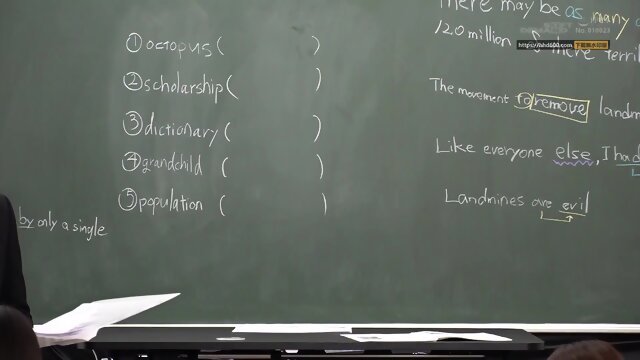 ① octopus ( )
② scholarship ( )
③ dictionary ( )
④ grandchild ( )
⑤ population ( )
by only a single
There may be as many
120 million
The movement to remove landm
Like everyone else, I had
Landmines are evil
No. 010023
https://ahd600.com